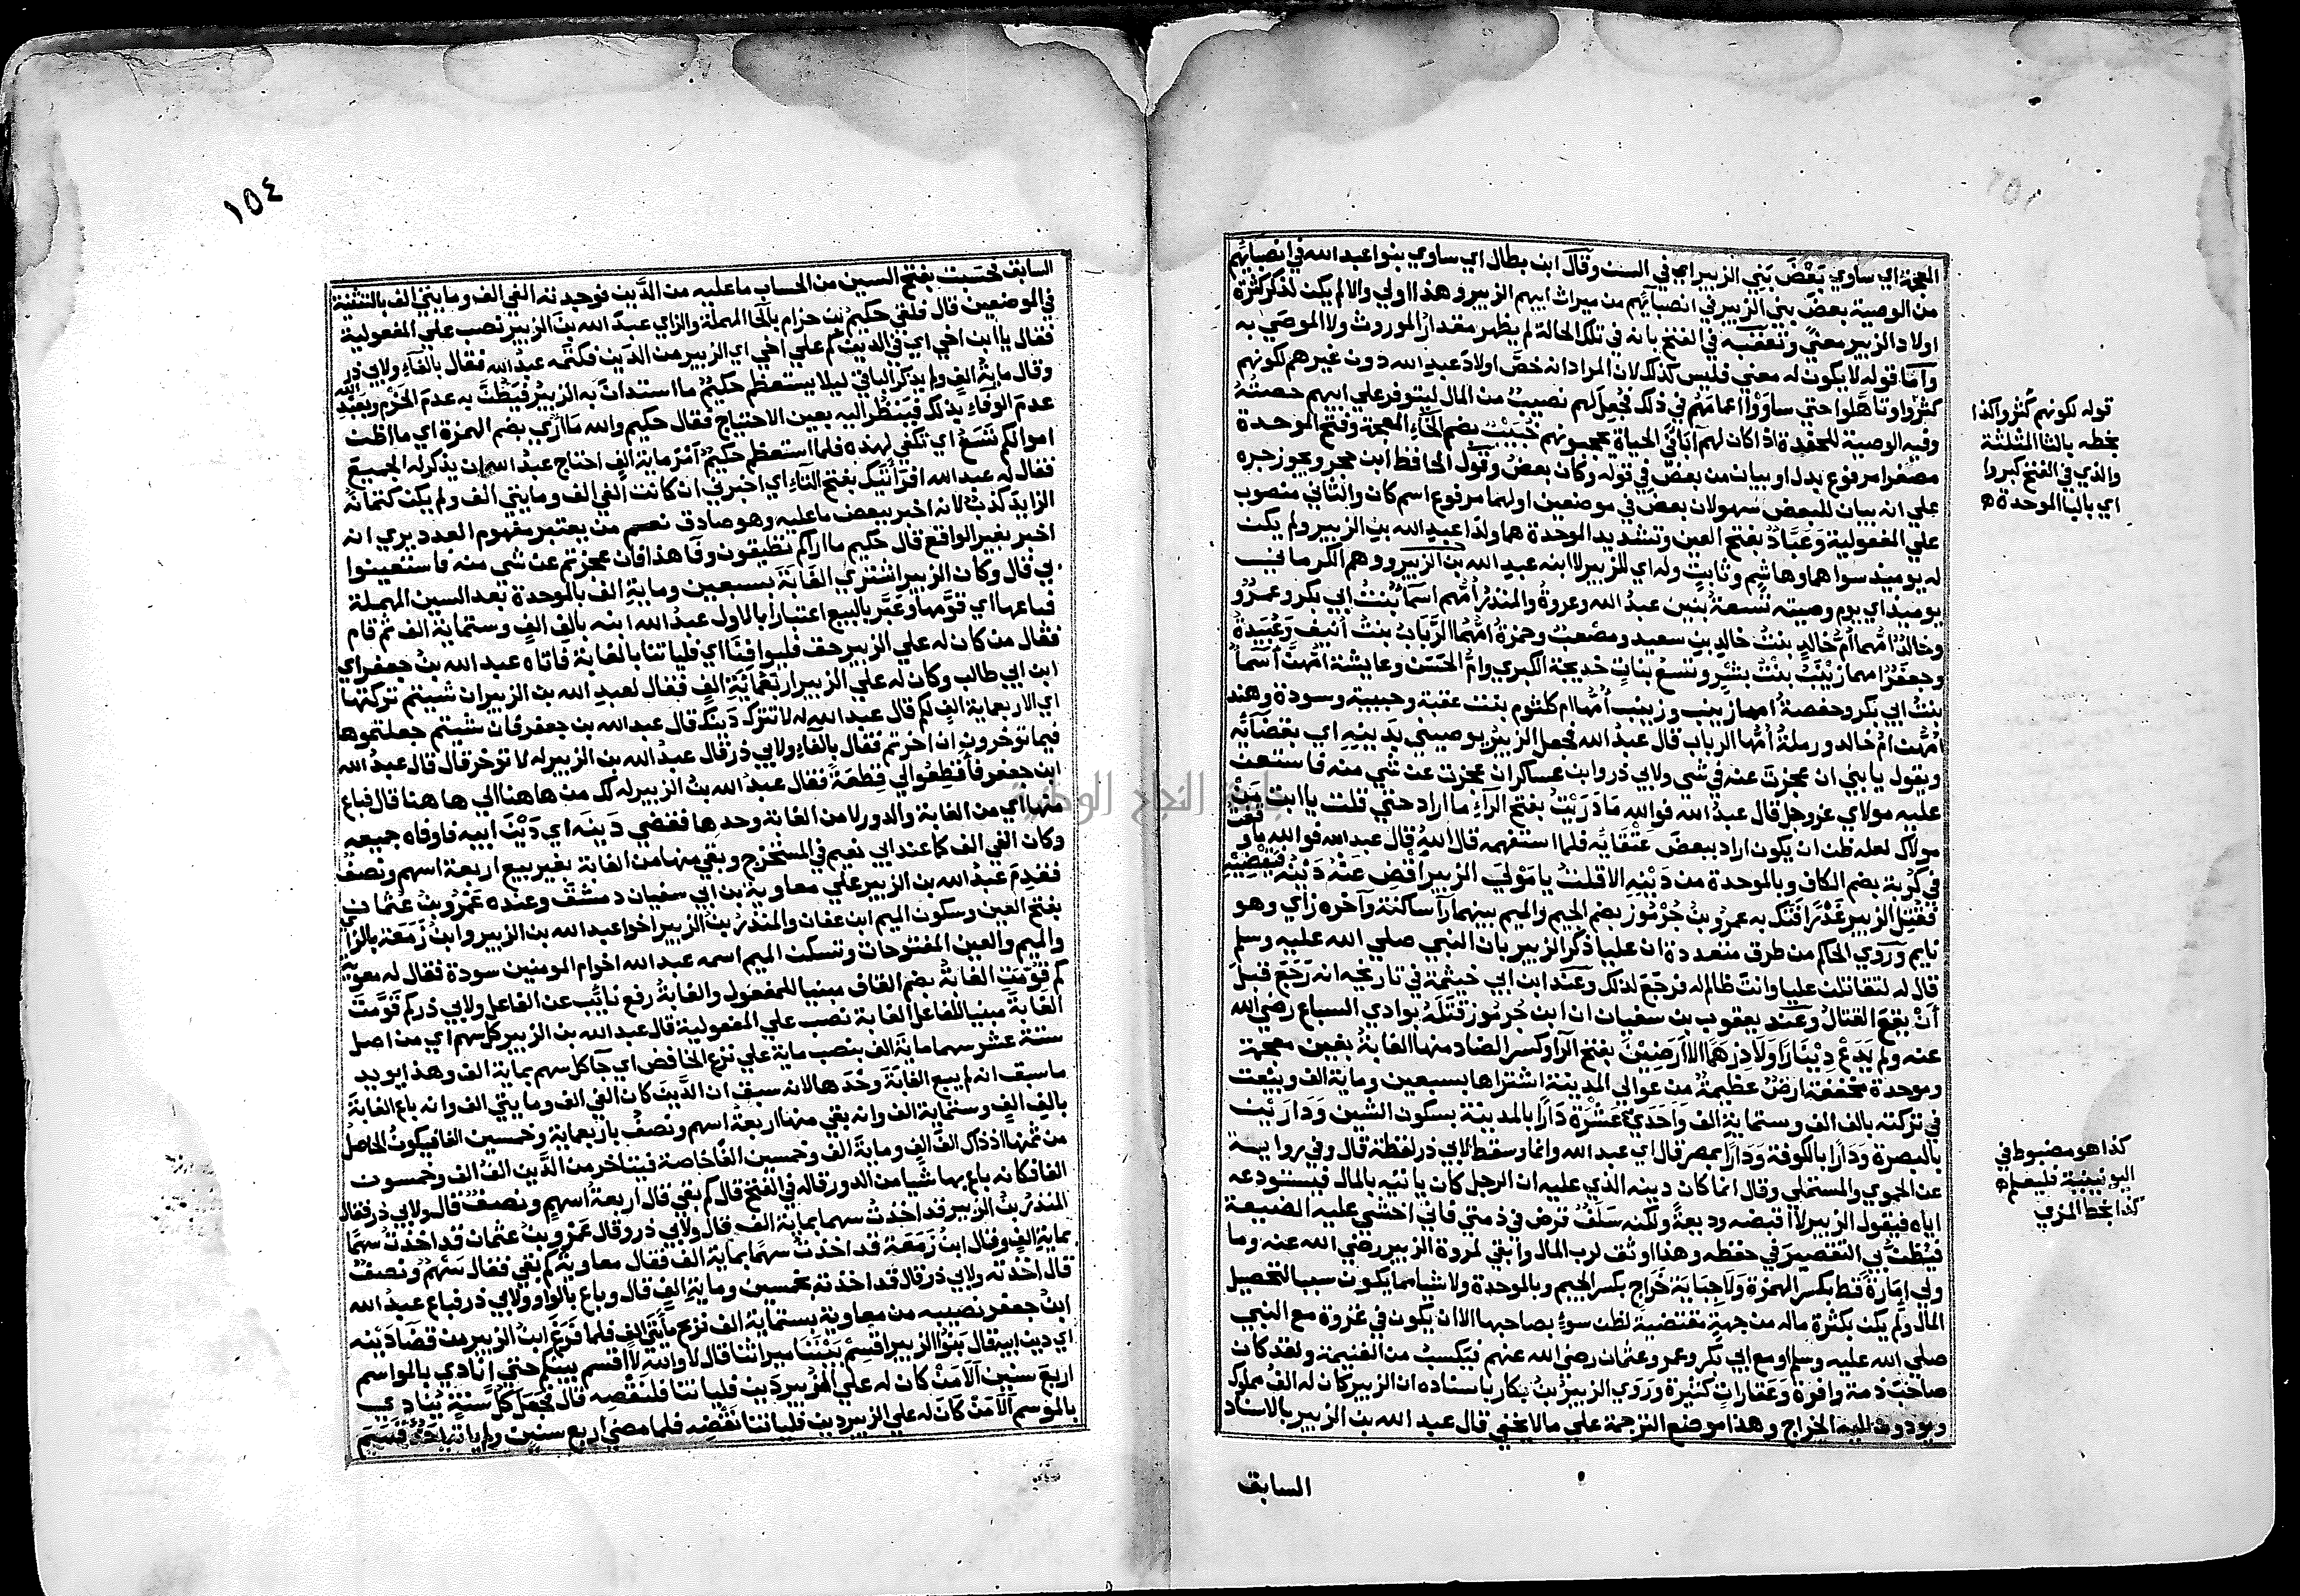 المعجمة اي ساوي بَعْضَ بَني الزبير اي في السن وقال ابن بطال اي ساوي بنوا عبد الله في انصبائهم
من الوصية بعض بني الزبير في انصبائهم من ميراث ابيهم الزبير وهذا اولي والا لم يكن لذكر كثرة
اولاد الزبير معنيً وتعقبه في الفتح بانه في تلك الحالة لم يظهر مقدار الموروث ولا الموصَي به
وأما قوله لا يكون له معني فليس كذلك لان المراد انه خصّ اولادَ عبد الله دون غيرهم لكونهم
كثروا وتأهّلوا حتي ساوَوْا اعمامَهُم في ذلك فجعل لهم نصيبٌ من المال ليتوفر علي ابيهم حصته
وفيه الوصية للحفدة اذا كان لهم آباءٌ في الحياة يحجبونهم خُبَيْبٌ بضم الخاء المعجمة وفتح الموحدة
مصغرا مرفوع بدل او بيان من بعض في قوله وكان بعض وقول الحافظ ابن حجر ويجوز جره
علي انه بيان للبعض سهو لان بعض في موضعين اولهما مرفوع اسم كان والثاني منصوب
علي المفعولية وَعَبَّادٌ بفتح العين وتشديد الموحدة هما ولدا عبد الله بن الزبير ولم يكن
له يوميذ سواهما وهاشم وثابت وله اي للزبير لا ابنه عبد الله بن الزبير ووهم الكرماني
يوميذ اي يوم وصيته تسعةُ بَنِين عبدُ الله وعروةُ والمنذرُ أمُّهم اسمآ بنتُ ابي بكر وعمرٌو
وخالدٌ امهما أمُّ خالدٍ بنتُ خالدِ بن سعيد ومصعبٌ وحمزةُ امهما الرَّبَابُ بنتُ أنيف وَعُبَيدةُ
وجعفرٌ امهما زَيْنَبُ بنتُ بشر وتسعُ بناتٍ خديجة الكبري وامُّ الحسن وعايشة امّهنّ أسماءُ
بنتُ ابي بكر وحفصةُ امها زينب وزينب أمُّها ام كلثوم بنت عقبة وحبيبة وسودة وهند
امُّهن امُّ خالد ورملةُ أمُّها الرباب قال عبدُ الله فجعل الزبير يوصيني بدَينِهِ اي بقضائه
ويقول يا بنيّ ان عجزت عنه في شي ولابي ذر وابن عساكر ان عجزت عن شي منه فاستعن
عليه مولاي عز وجل قال عبدُ الله فوالله مَا دَرَيْتُ بفتح الرآء ما اراد حتي قلت يا ابت مَنْ
مولاك لعله ظن ان يكون اراد ببعض عتقايه فلما استفهمه قال اللهُ قال عبد الله فوالله ما وقعت
في كُربة بضم الكاف وبالموحدة من دَيْنِهِ الا قلتُ يا مَوْلَيَ الزبير اقضِ عنهُ دَيْنَه فيَقْضِيهِ
فقُتِل الزبير غَدْرًا فتك به عمرُو بنُ جُرْمُوز بضم الجيم والميم بينهما رآ ساكنة وآخره زاي وهو
نايم وروي الحاكم من طرق متعددة ان عليا ذكّر الزبير بان النبي صلي الله عليه وسلم
قال له لتقاتلن عليا وانت ظالم له فرجع لذلك وعند ابن ابي خيثمة في تاريخه انه رجع قبل
أن يقع القتالُ وعند يعقوب بن سفيان ان ابن جُرموز قَتَلَهُ بوادي السباع رضي الله
عنه ولم يَدَعْ دِينَارًا وَلَا دِرْهَمًا الا أرَضِينَ بفتح الرآ وكسر الضاد منها الغابةُ بغين معجمة
وموحدة مخففة ارضٌ عظيمةٌ من عوالي المدينة اشتراها بسبعين وماية الف وبيعت
في تركته بالف الف وستماية الف وَاحدَي عَشْرَةَ دَارًا بالمدينة بسكون الشين وَدَارَيْن
بالبصرة وَدَارًا بالكوفة وَدَارًا بمصر قال اي عبد الله وانما وسقط لابي ذر لفظة قال وفي رواية
عن الحموي والمستملي وقال انما كان دينه الذي عليه ان الرجل كان ياتيه بالمال فيستودعه
اياه فيقول الزبير لا اقبضه وديعةً ولكنه سَلَفٌ قرض في ذمتي فاني اخشي عليه الضيعة
فيُظَنُّ بي التقصير في حفظه وهذا اوثق لرب المال وابقي لمروة الزبير رضي الله عنه وما
ولي إمَارةً قط بكسر الهمزة وَلَا جِبَايَةَ خَرَاجٍ بكسر الجيم وبالموحدة ولا شيا مما يكون سببا لتحصيل
المال ولم يكن بكثرة ماله من جهةٍ مقتضيةٍ لظن سوءٍ بصاحبها الا ان يكون في غزوة مع النبي
صلي الله عليه وسلم او مع ابي بكر وعمر وعثمان رضي الله عنهم فيكسبُ من الغنيمة ولقد كان
صاحبَ ذمة وافرة وَعَقاراتٍ كثيرة وروي الزبيرُ بنُ بكار باسناده ان الزبير كان له الفُ مملوك
ويودون اليه الخراج وهذا موضع الترجمة علي ما لا يخفي قال عبد الله بن الزبير بالاسناد
السابق
قوله لكونهم كثروا كذا
بخطه بالثا المثلثة
والذي في الفتح كبروا
اي بالبا الموحدة ه
كذا هو مضبوط في
اليونينية فليعلم ه
كذا بخط المزي
١٥٤
السابق فحَسَبت بفتح السين من الحساب ما عليه من الدَّين فوجدته الفي الف ومايتي الف بالتثنية
في الموضعين قال فلقي حكيمُ بن حزام بالحا المهملة والزاي عبدَ الله بنَ الزبير نصب علي المفعولية
فقال يا ابن اخي اي في الدين كم علي اخي اي الزبير من الدَين فكتمه عبدُ الله فقال بالفآء ولابي ذر
وقال مايةُ الفٍ ولم يذكر الباقي ليلا يستعظم حكيمٌ ما استدانَ به الزبيرُ فيَظُنَّ به عدم الحزم وبعبد الله
عدم الوفاء بذلك فيَنظُر اليه بعين الاحتياج فقال حكيم والله مَا أُرَي بضم الهمزة اي ما اظن
اموالكم تَسَعُ اي تكفي لهذه فلما استعظم حكيم أمْرَ مايةِ الفٍ احتاج عبدُ الله ان يذكر له الجميعَ
فقال له عبد الله افرأيتَكَ بفتح التاء اي اخبرني ان كانت الفي الف ومايتي الف ولم يكن كتمانُه
الزايدَ كذبًا لانه اخبر ببعض ما عليه وهو صادق نعم من يعتبر مفهوم العدد يري انه
اخبر بغير الواقع قال حكيم ما اراكم تطيقون وفآ هذا فان عجزتم عن شي منه فاستعينوا
بي قال وكان الزبير اشتري الغَابَةَ بسبعين ومايةِ الف بالموحدة بعد السين المهملة
فباعها اي قوّمها وعبَّر بالبيع اعتبارا بالاول عبدُ الله ابنه بالف الفٍ وستماية الف ثم قام
فقال من كان له علي الزبير حق فليوافِنَا اي فلياتنا بالغابة فاتاه عبد الله بنُ جعفر اي
ابن ابي طالب وكان له علي الزبير اربَعُمائَةِ الفٍ فقال لعبد الله بن الزبير ان شيتم تركتها
اي الاربعماية الف لكم قال عبد الله له لا تترك دَينك قال عبد الله بن جعفر فان شيتم جعلتموها
فيما توخرون ان اخرتم فقال بالفآء ولابي ذر قال عبدُ الله بن الزبير له لا توخر قال قال عبدُ الله
ابن جعفر فأقطِعُوا لي قِطعَةً فقال عبدُ الله بنُ الزبير له لك من هاهنا الي هاهنا قال فباع
منها اي من الغابة والدور لا من الغابة وحدها فقضي دَينَه اي دَيْنَ ابيه فاوفاه جميعه
وكان الفي الف كما عند ابي نعيم في المستخرج وبقي منها من الغابة بغير بيع اربعة اسهم ونصفٌ
فقدِم عبدُ الله بن الزبير علي معاوية بن ابي سفيان دمشق وعنده عَمْرُو بنُ عثمان
بفتح العين وسكون الميم ابن عفان والمنذرُ بنُ الزبير اخوا عبد الله بن الزبير وابنُ زَمَعة بالزا
والميم والعين المفتوحات وتسكن الميم اسمه عبد الله اخوام المومنين سودة فقال له معوية
كم قُوّمَتِ الغابةُ بضم القاف مبنيا للمفعول والغابةُ رفع نائب عن الفاعل ولابي ذر كم قَوَّمتَ
الغابةَ مبنيا للفاعل الغابة نصب علي المفعولية قال عبد الله بن الزبير كل سهم اي من اصل
ستة عشر سهما مايةَ الف بنصب ماية علي نزع الخافض اي جآ كل سهم بماية الف وهذا يويد
ما سبق انه لم يبع الغابَةَ وحدها لانه سبق ان الدَّينَ كان الفي الف ومايتي الف وانه باع الغابةَ
بالف الفٍ وستمايةِ الف وانه بقي منها اربعةُ اسهم ونصفٌ باربعماية وخمسين الفا فيكونُ الحاصل
من ثمنها اذ ذاك الفَ الفٍ ومايةَ الف وخمسين الفًا خاصة فيتاخر من الدَّين الفُ الف وخمسون
الفا فكانه باع بها شيا من الدور قاله في الفتح قال كم بقي قال اربعةُ اسهمٍ ونصفٌ قال ولابي ذر فقال
المنذرُ بنُ الزبير قد اخذتُ سهما بماية الف قال ولابي ذر وقال عَمْرُو بنُ عثمان قد اخذتُ سهمًا
بماية الفٍ وقال ابنُ زَمَعَة قد اخذتُ سهمًا بماية الف فقال معاويةُ كم بقي فقال سَهْمٌ ونصفٌ
قال اخذته ولابي ذر قال قد اخذته بخمسين ومايةِ الف قال وباع بالواو ولابي ذر فباع عبدُ الله
ابنُ جعفر نصيبه من معاوية بستماية الف فربح مأيَتَي الفٍ فلما فَرَغَ ابنُ الزبير من قضآء دَيْنِه
اي دين ابيه قال بَنُوا الزبير اقسِمْ بَيْنَنَا ميراثنا قال لا والله لا اقسم بينكم حتي انادي بالمواسم
اربعَ سنين ألَا مَنْ كان له علي الزبير دَين فلياتنا فلنقضِه قال فجعل كُلَّ سَنَةٍ يُنادي
بالموسم ألَا مَنْ كان له علي الزبير دين فلياتنا نقضِه فلما مضي اربع سنين ولم ياته احدٌ قسم